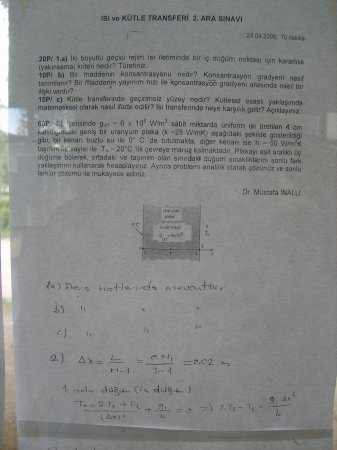 ISI ve KÜTLE TRANSFERİ 2. ARA SINAVI
28.04.2006, 70 dakika
20P/ 1.a) İki boyutlu geçici rejim ısı iletiminde bir iç düğüm noktası için kararlılık
(yakınsama) kriteri nedir? Türetiniz.
10P/ b) Bir maddenin konsantrasyonu nedir? Konsantrasyon gradyeni nasıl
tanımlanır? Bir maddenin yayınım hızı ile konsantrasyon gradyeni arasında nasıl bir
ilişki vardır?
10P/ c) Kütle transferinde geçirimsiz yüzey nedir? Kütlesel esaslı yaklaşımda
matematiksel olarak nasıl ifade edilir? Isı transferinde neye karşılık gelir? Açıklayınız.
60P/ 2) İçerisinde 5x10⁶ W/m³ sabit miktarda üniform ısı üretilen 4 cm
kalınlığındaki geniş bir uranyum plaka (k =28 W/mK) aşağıdaki şekilde gösterildiği
gibi bir kenarı buzlu su ile 0° C de tutulmakta, diğer kenarı ise h = W/m²K
taşınım ısı sayısı ile T∞ = 20°C 'lik çevreye maruz kalmaktadır. Plakayı eşit aralıklı üç
düğüme bölerek, ortadaki ve taşınım olan sınırdaki düğüm sıcaklıklarını sonlu fark
yaklaşımını kullanarak hesaplayınız. Ayrıca problemi analitik olarak çözünüz ve sonlu
farklar çözümü ile mukayese ediniz.
Dr. Mustafa İNALLI
1a) Ders notlarında mevcuttur
b) " " "
c) " " "
2) Δx = L/M-1 = 0.04/3-1 = 0.02 m
1 nolu düğüm (iç düğüm)